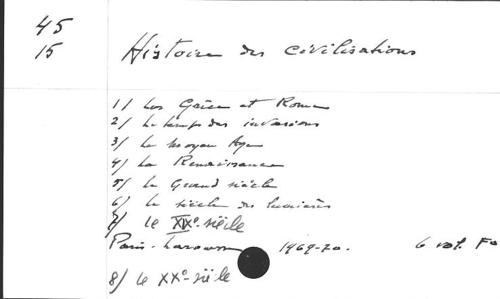 45
15 Histoire des civilisations
1/ Les Grèce et Rome
2/ Le temps des invasions
3/ Le Moyen Age
4/ La Renaissance
5/ Le Grand siècle
6/ Le siècle des lumières
7/ Le XIXe siècle
Paris - Larousse 1969-70. 6 vol.
8/ Le XXe siècle